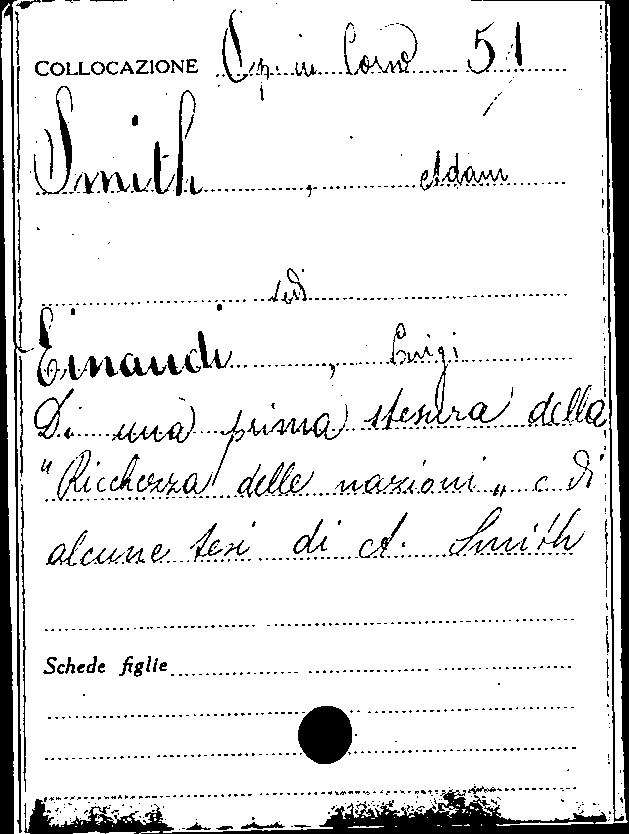 COLLOCAZIONE Op. in Corso 51
Smith, Adam
vedi
Einaudi, Luigi
Di una prima stesura della
"Ricchezza delle nazioni" e di
alcune tesi di A. Smith
Schede figlie